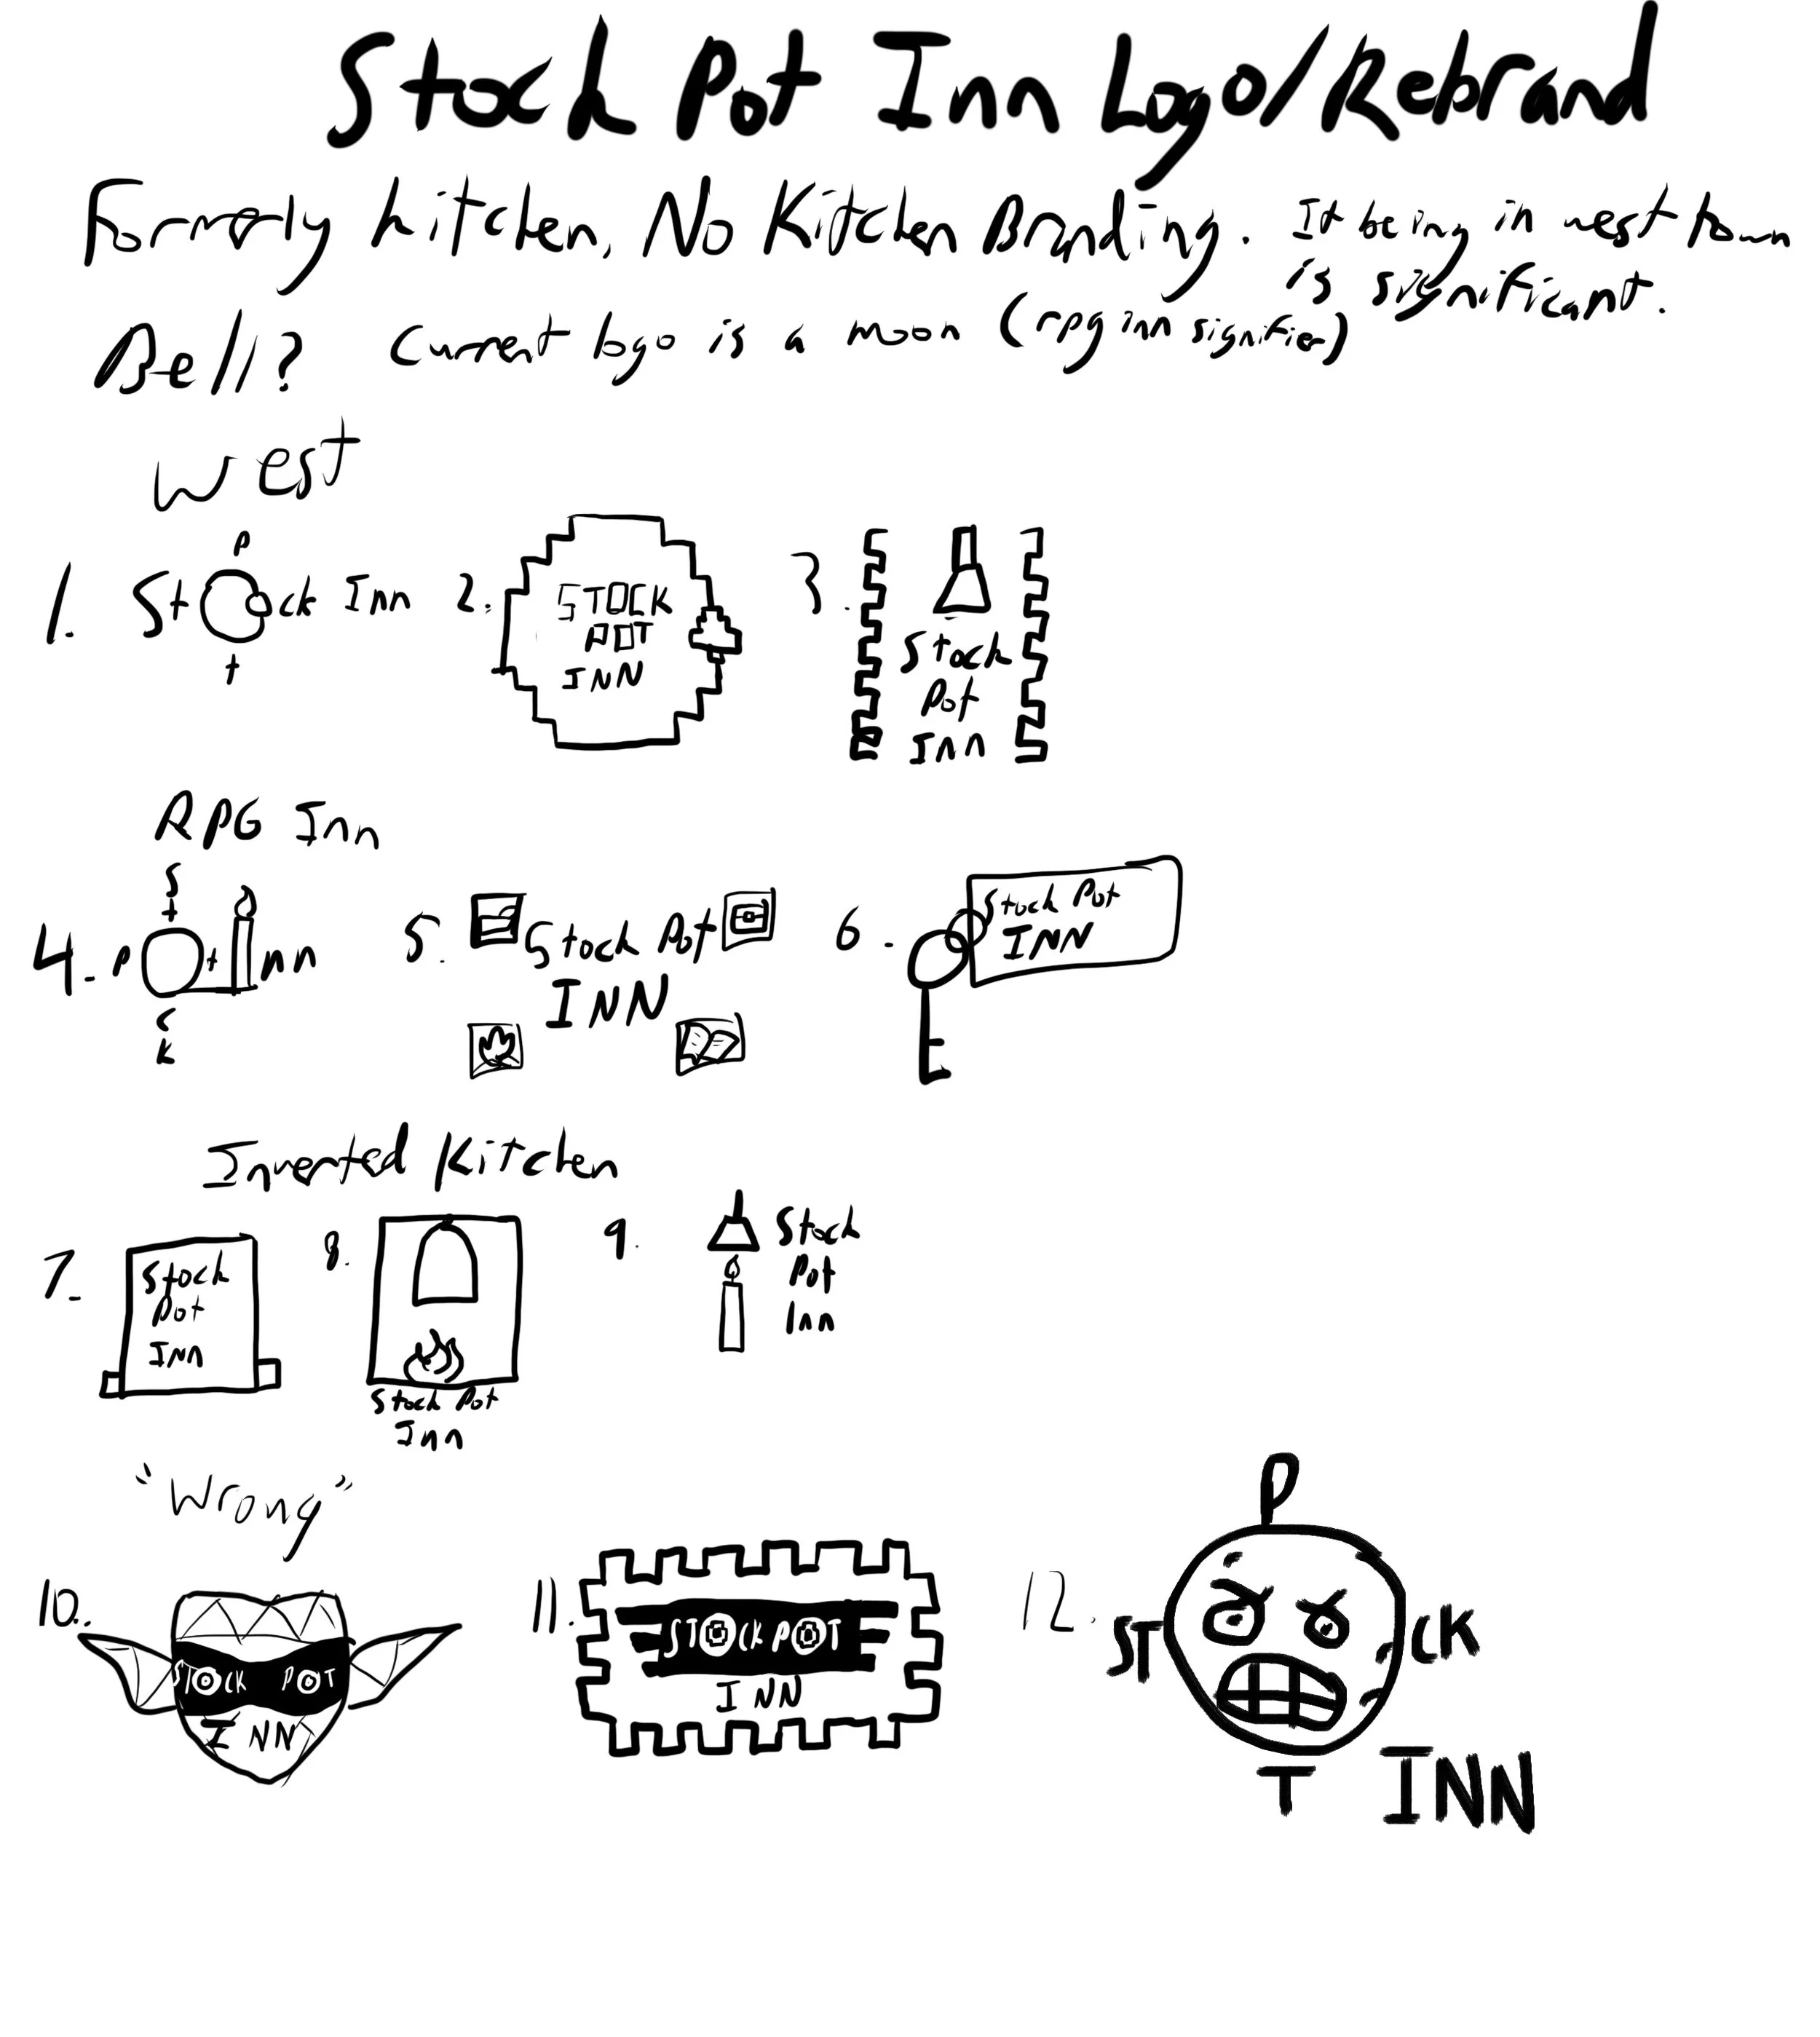 Stock Pot Inn Logo/Rebrand
Formerly kitchen, No Kitchen Branding. It being in west town
is significant.
Bell? Current logo is a moon (rpg inn signifier)
West
1. Stock Inn
P
t
2. STOCK
POT
INN
3. Stock
Pot
Inn
RPG Inn
4. P t Inn
S
t
c
k
5. Stock Pot
INN
6. Stock Pot
INN
Inverted Kitchen
7. Stock
Pot
Inn
8. Stock Pot
Inn
9. Stock
Pot
Inn
"Wrong"
10. STOCK POT
INN
11. STOCK POT
INN
12. ST CK
P
T INN